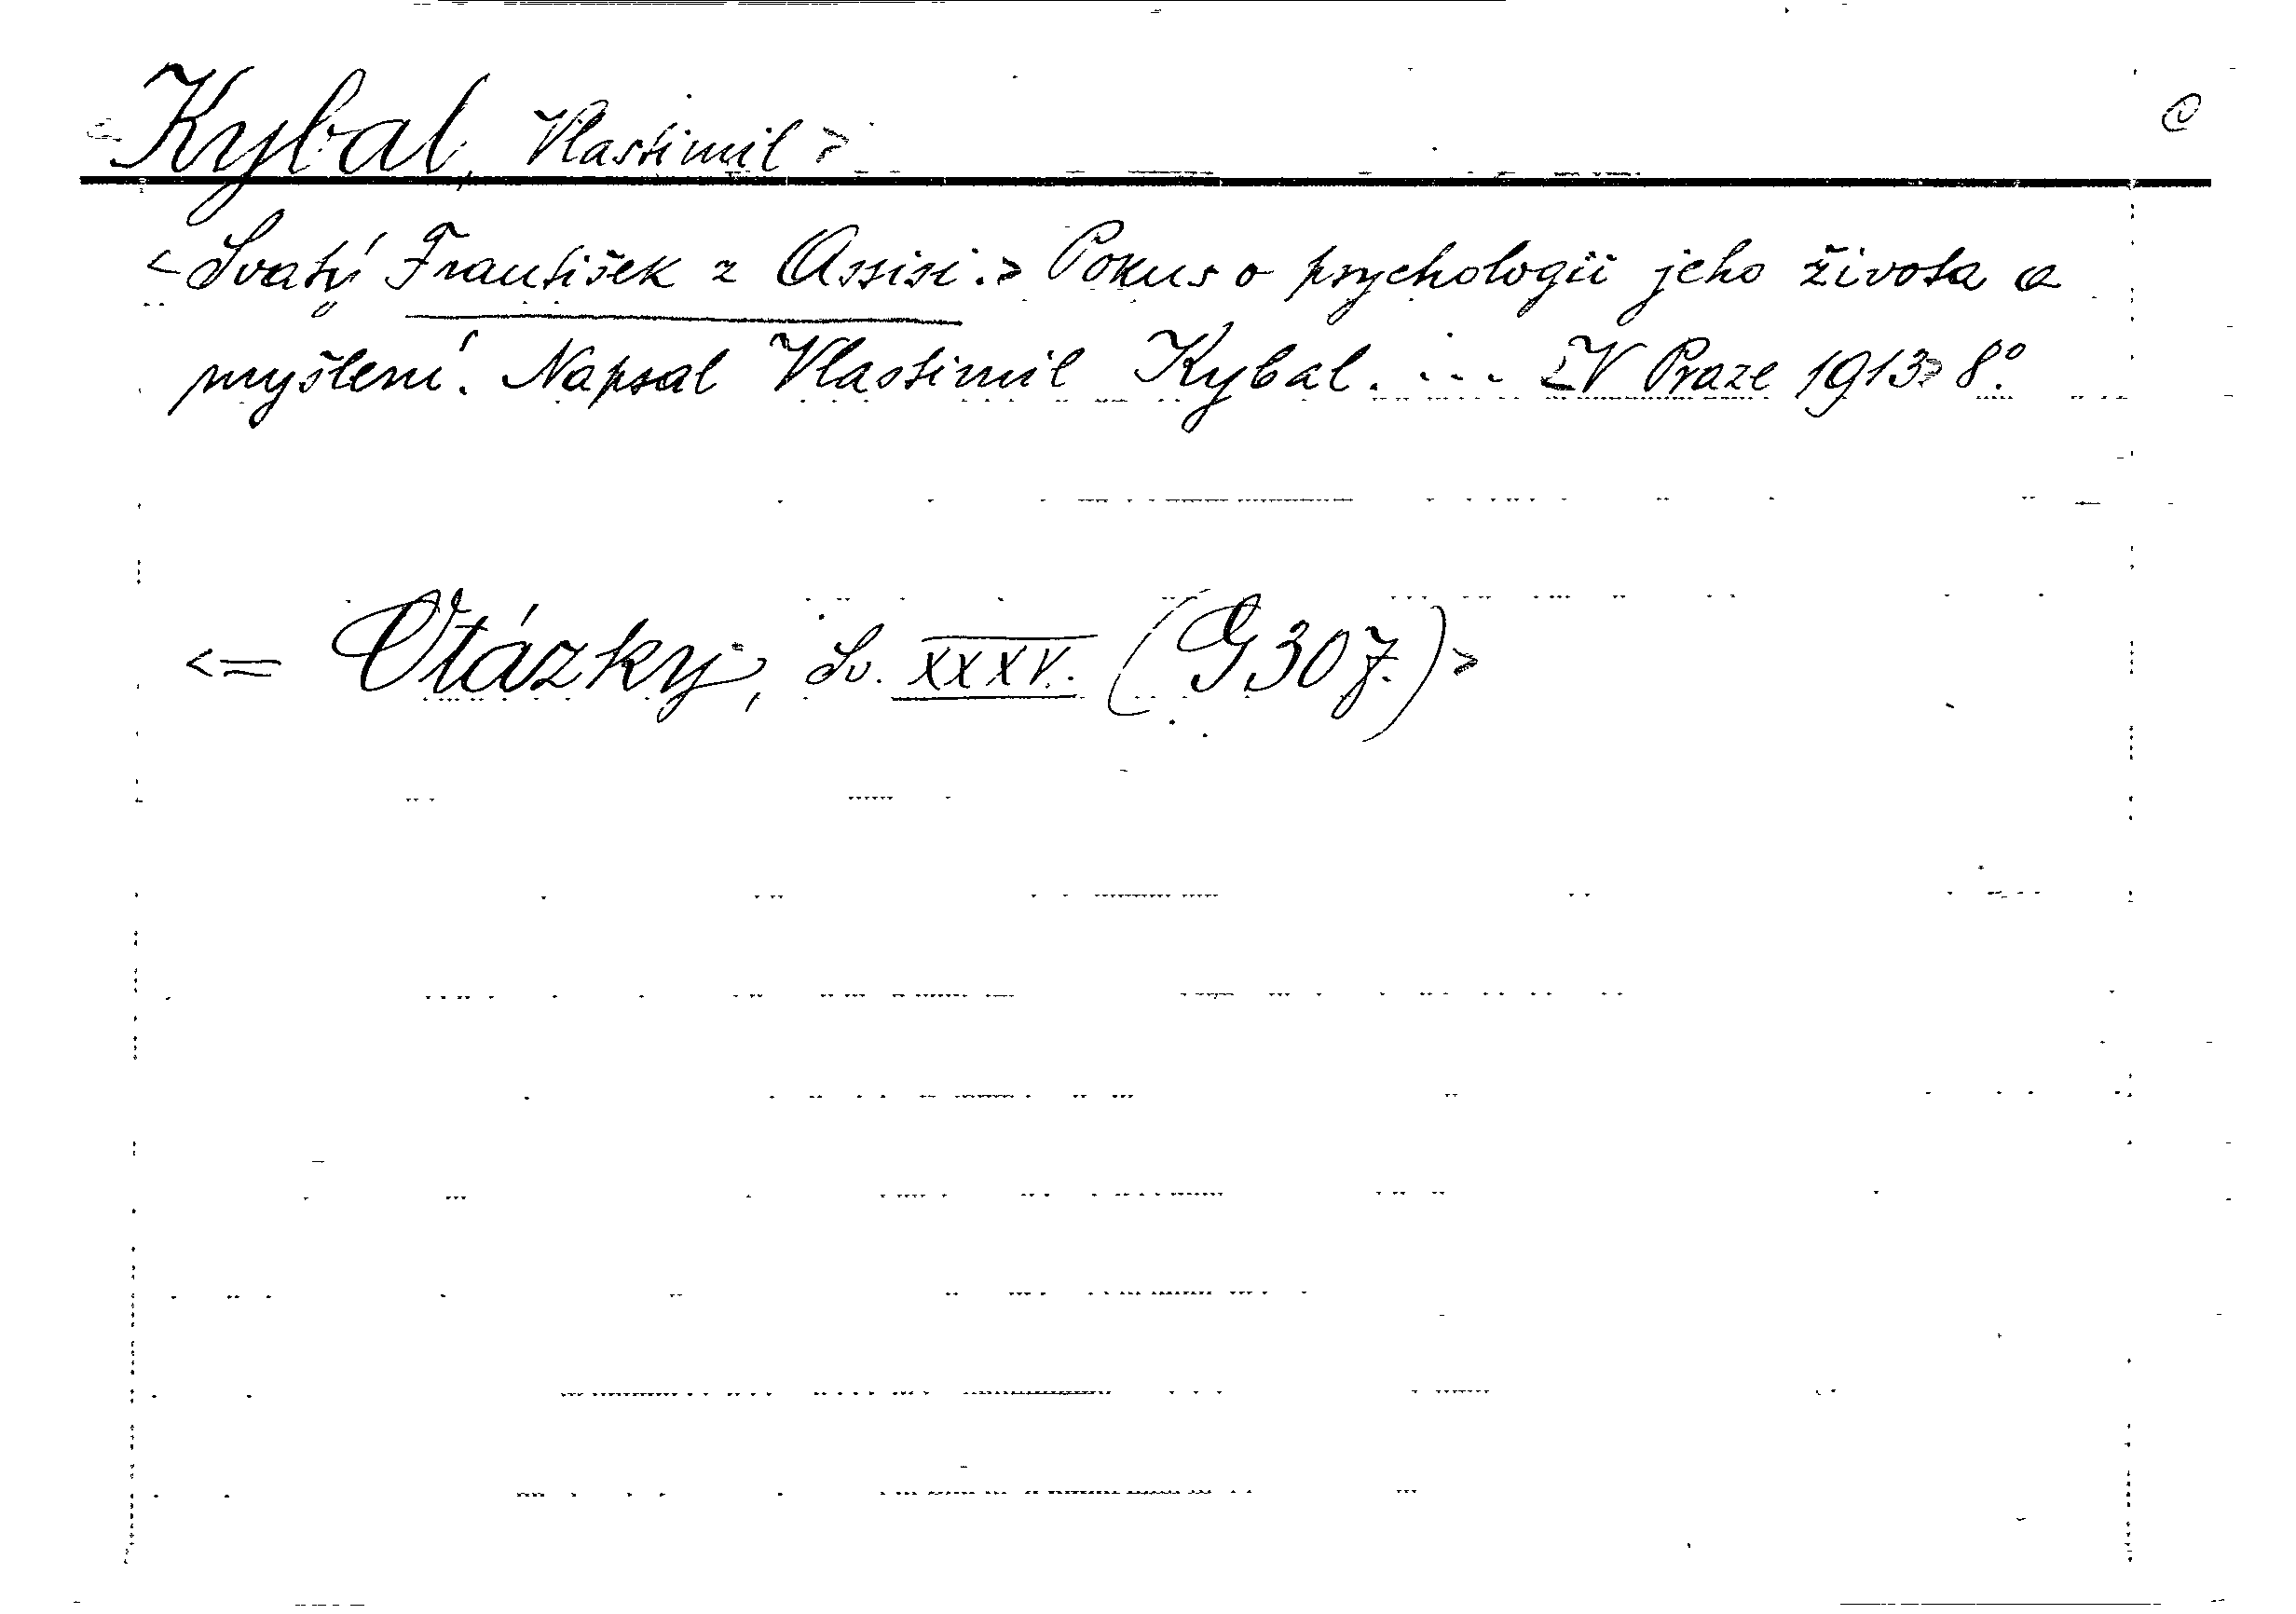 Kybal, Vlastimil >
<Svatý František z Assisi.> Pokus o psychologii jeho života a
myšlení. Napsal Vlastimil Kybal. ... <V Praze 1913> 8°.
<= Otázky, Sv. XXXV. (G 307.)>